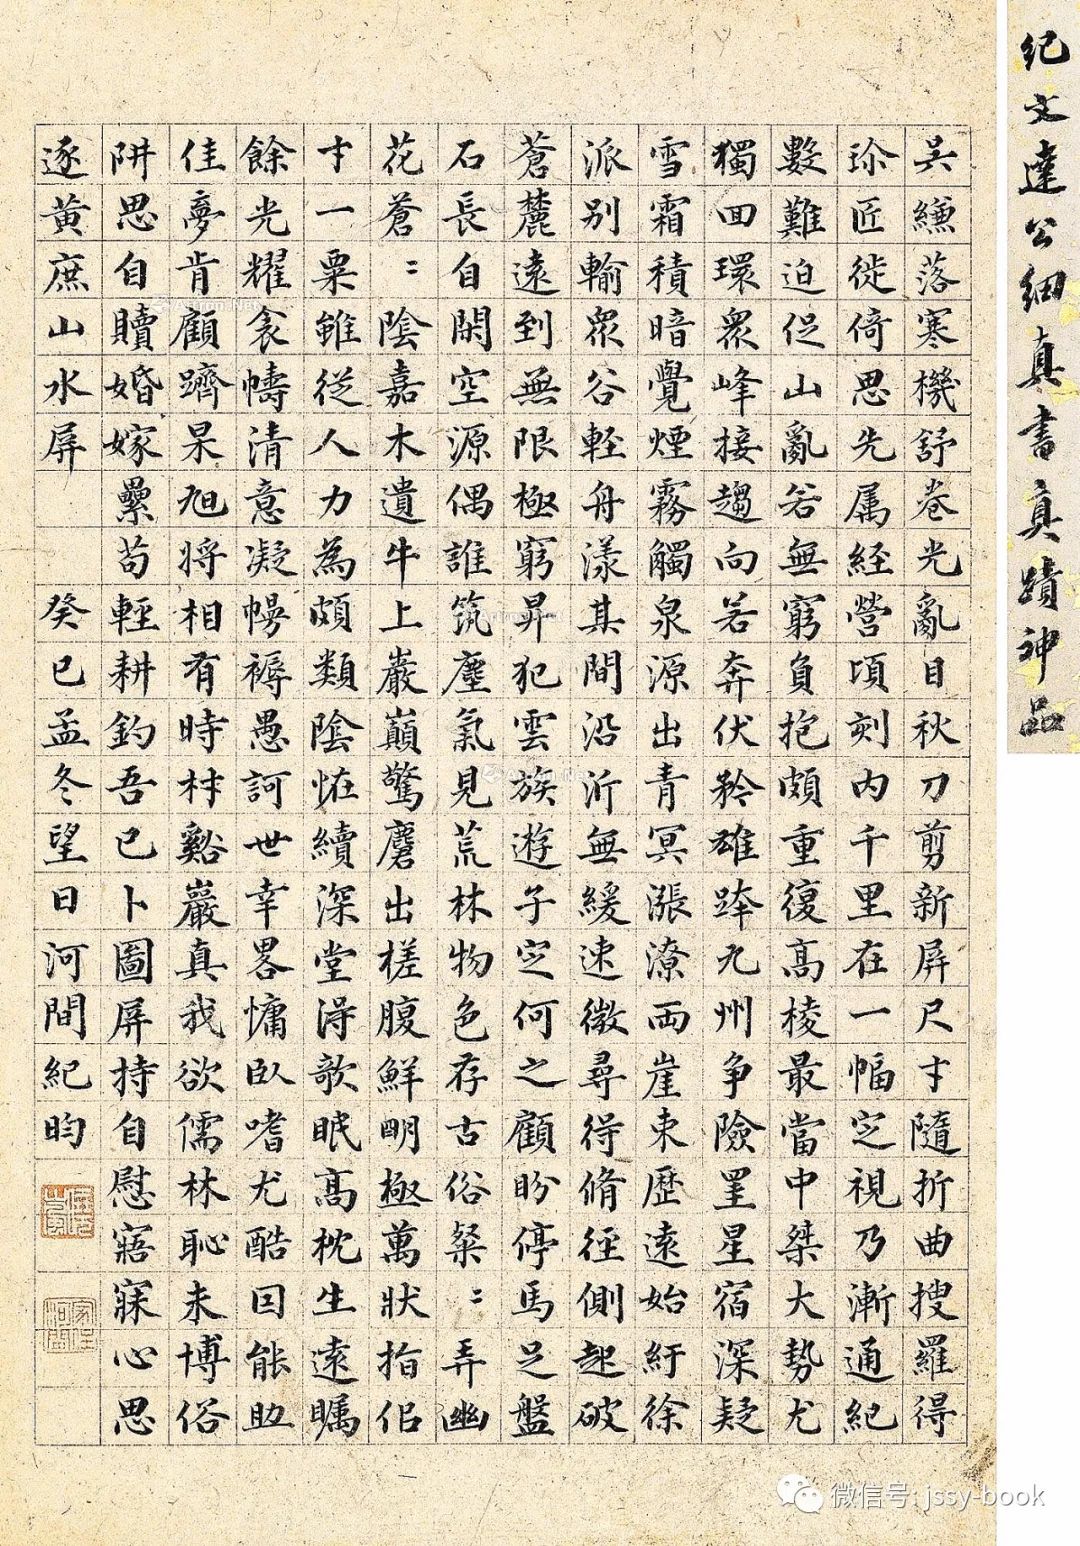 紀文達公細真書真蹟神品
吳縑落寒機舒卷光亂目秋刀剪新屏尺寸隨折曲搜羅得
珎匠徙倚思先属経營頃刻内千里在一幅定視乃漸通紀
數難迫促山亂若無窮負抱頗重復高棱最當中桀大勢尤
獨回環衆峰接趨向若奔伏矜雄跨九州争險罣星宿深疑
雪霜積暗覺煙霧觸泉源出青冥漲潦兩崖束歷遠始紆徐
派別輸衆谷軽舟漾其間沿泝無緩速微尋得脩徑側起破
蒼麓遠到無限極窮昇犯雲族遊子定何之顧盼停馬足盤
石長自閑空源偶誰筑塵氣見荒林物色存古俗粲〻弄幽
花蒼〻陰嘉木遺牛上巖巔驚麏出槎腹鮮明極萬狀指佀
寸一粟雖従人力為頗類陰恠續深堂淂歌眠高枕生遠矚
餘光耀衾幬清意凝幔褥愚訶世幸畧慵臥嗜尤酷因能助
佳夢肯顧躋杲旭将相有時材谿巖真我欲儒林恥未博俗
阱思自贖婚嫁纍苟輕耕釣吾已卜圖屏持自慰寤寐心思
逐黃庶山水屏 癸巳孟冬望日河間紀昀
微信号: jssy-book